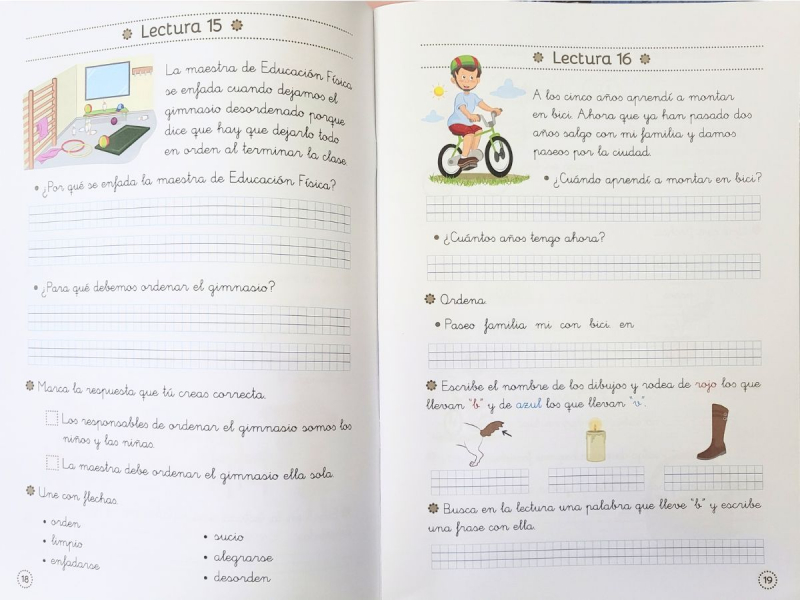 Lectura 15
La maestra de Educación Física
se enfada cuando dejamos el
gimnasio desordenado porque
dice que hay que dejarlo todo
en orden al terminar la clase.
• ¿Por qué se enfada la maestra de Educación Física?
• ¿Para qué debemos ordenar el gimnasio?
Marca la respuesta que tú creas correcta.
Los responsables de ordenar el gimnasio somos los
niños y las niñas.
La maestra debe ordenar el gimnasio ella sola.
Une con flechas.
• orden
• limpio
• enfadarse
• sucio
• alegrarse
• desorden
18
Lectura 16
A los cinco años aprendí a montar
en bici. Ahora que ya han pasado dos
años salgo con mi familia y damos
paseos por la ciudad.
• ¿Cuándo aprendí a montar en bici?
• ¿Cuántos años tengo ahora?
Ordena.
• Paseo familia mi con bici. en
Escribe el nombre de los dibujos y rodea de rojo los que
llevan "b" y de azul los que llevan "v".
Busca en la lectura una palabra que lleve "b" y escribe
una frase con ella.
19